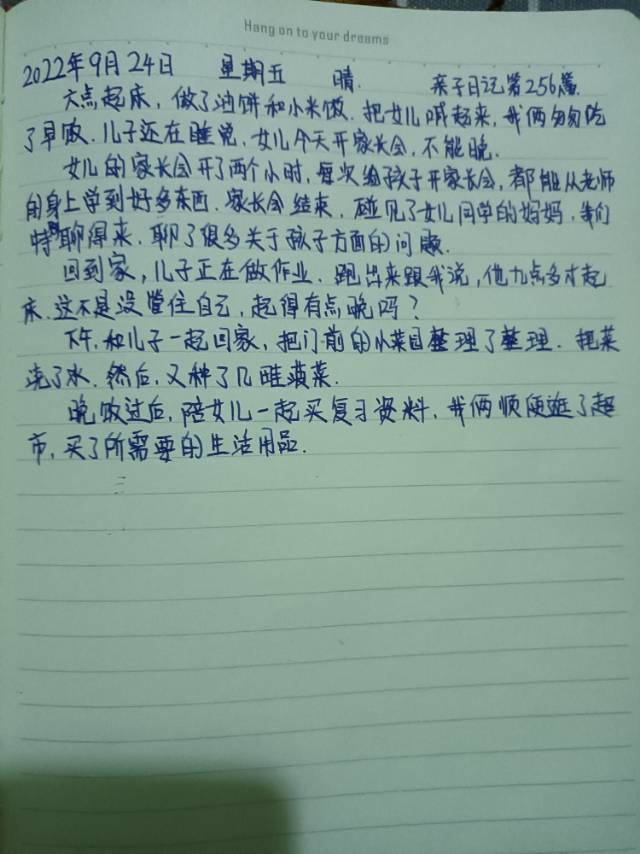 Hang on to your dreams
2022年9月24日 星期五 晴. 亲子日记第256篇.
六点起床，做了油饼和小米饭.把女儿喊起来，我俩匆匆吃
了早饭.儿子还在睡觉.女儿今天开家长会，不能晚.
女儿的家长会开了两个小时，每次给孩子开家长会，都能从老师
的身上学到好多东西.家长会结束，碰见了女儿同学的妈妈，我们
特聊得来，聊了很多关于孩子方面的问题.
回到家，儿子正在做作业.跑出来跟我说，他九点多才起
床.这不是没管住自己，起得有点晚吗？
下午.和儿子一起回家，把门前的小菜园整理了整理.把菜
浇了水.然后，又种了几畦菠菜.
晚饭过后，陪女儿一起买复习资料，我俩顺便逛了超
市，买了所需要的生活用品.